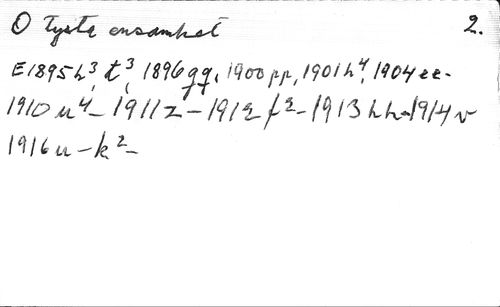 O Tysta ensamhet 2.
E1895h³, t³, 1896gg, 1900pp, 1901h⁴, 1904ee-
1910u⁴- 1911z- 1912f²- 1913hh- 1914v
1916u-k²-